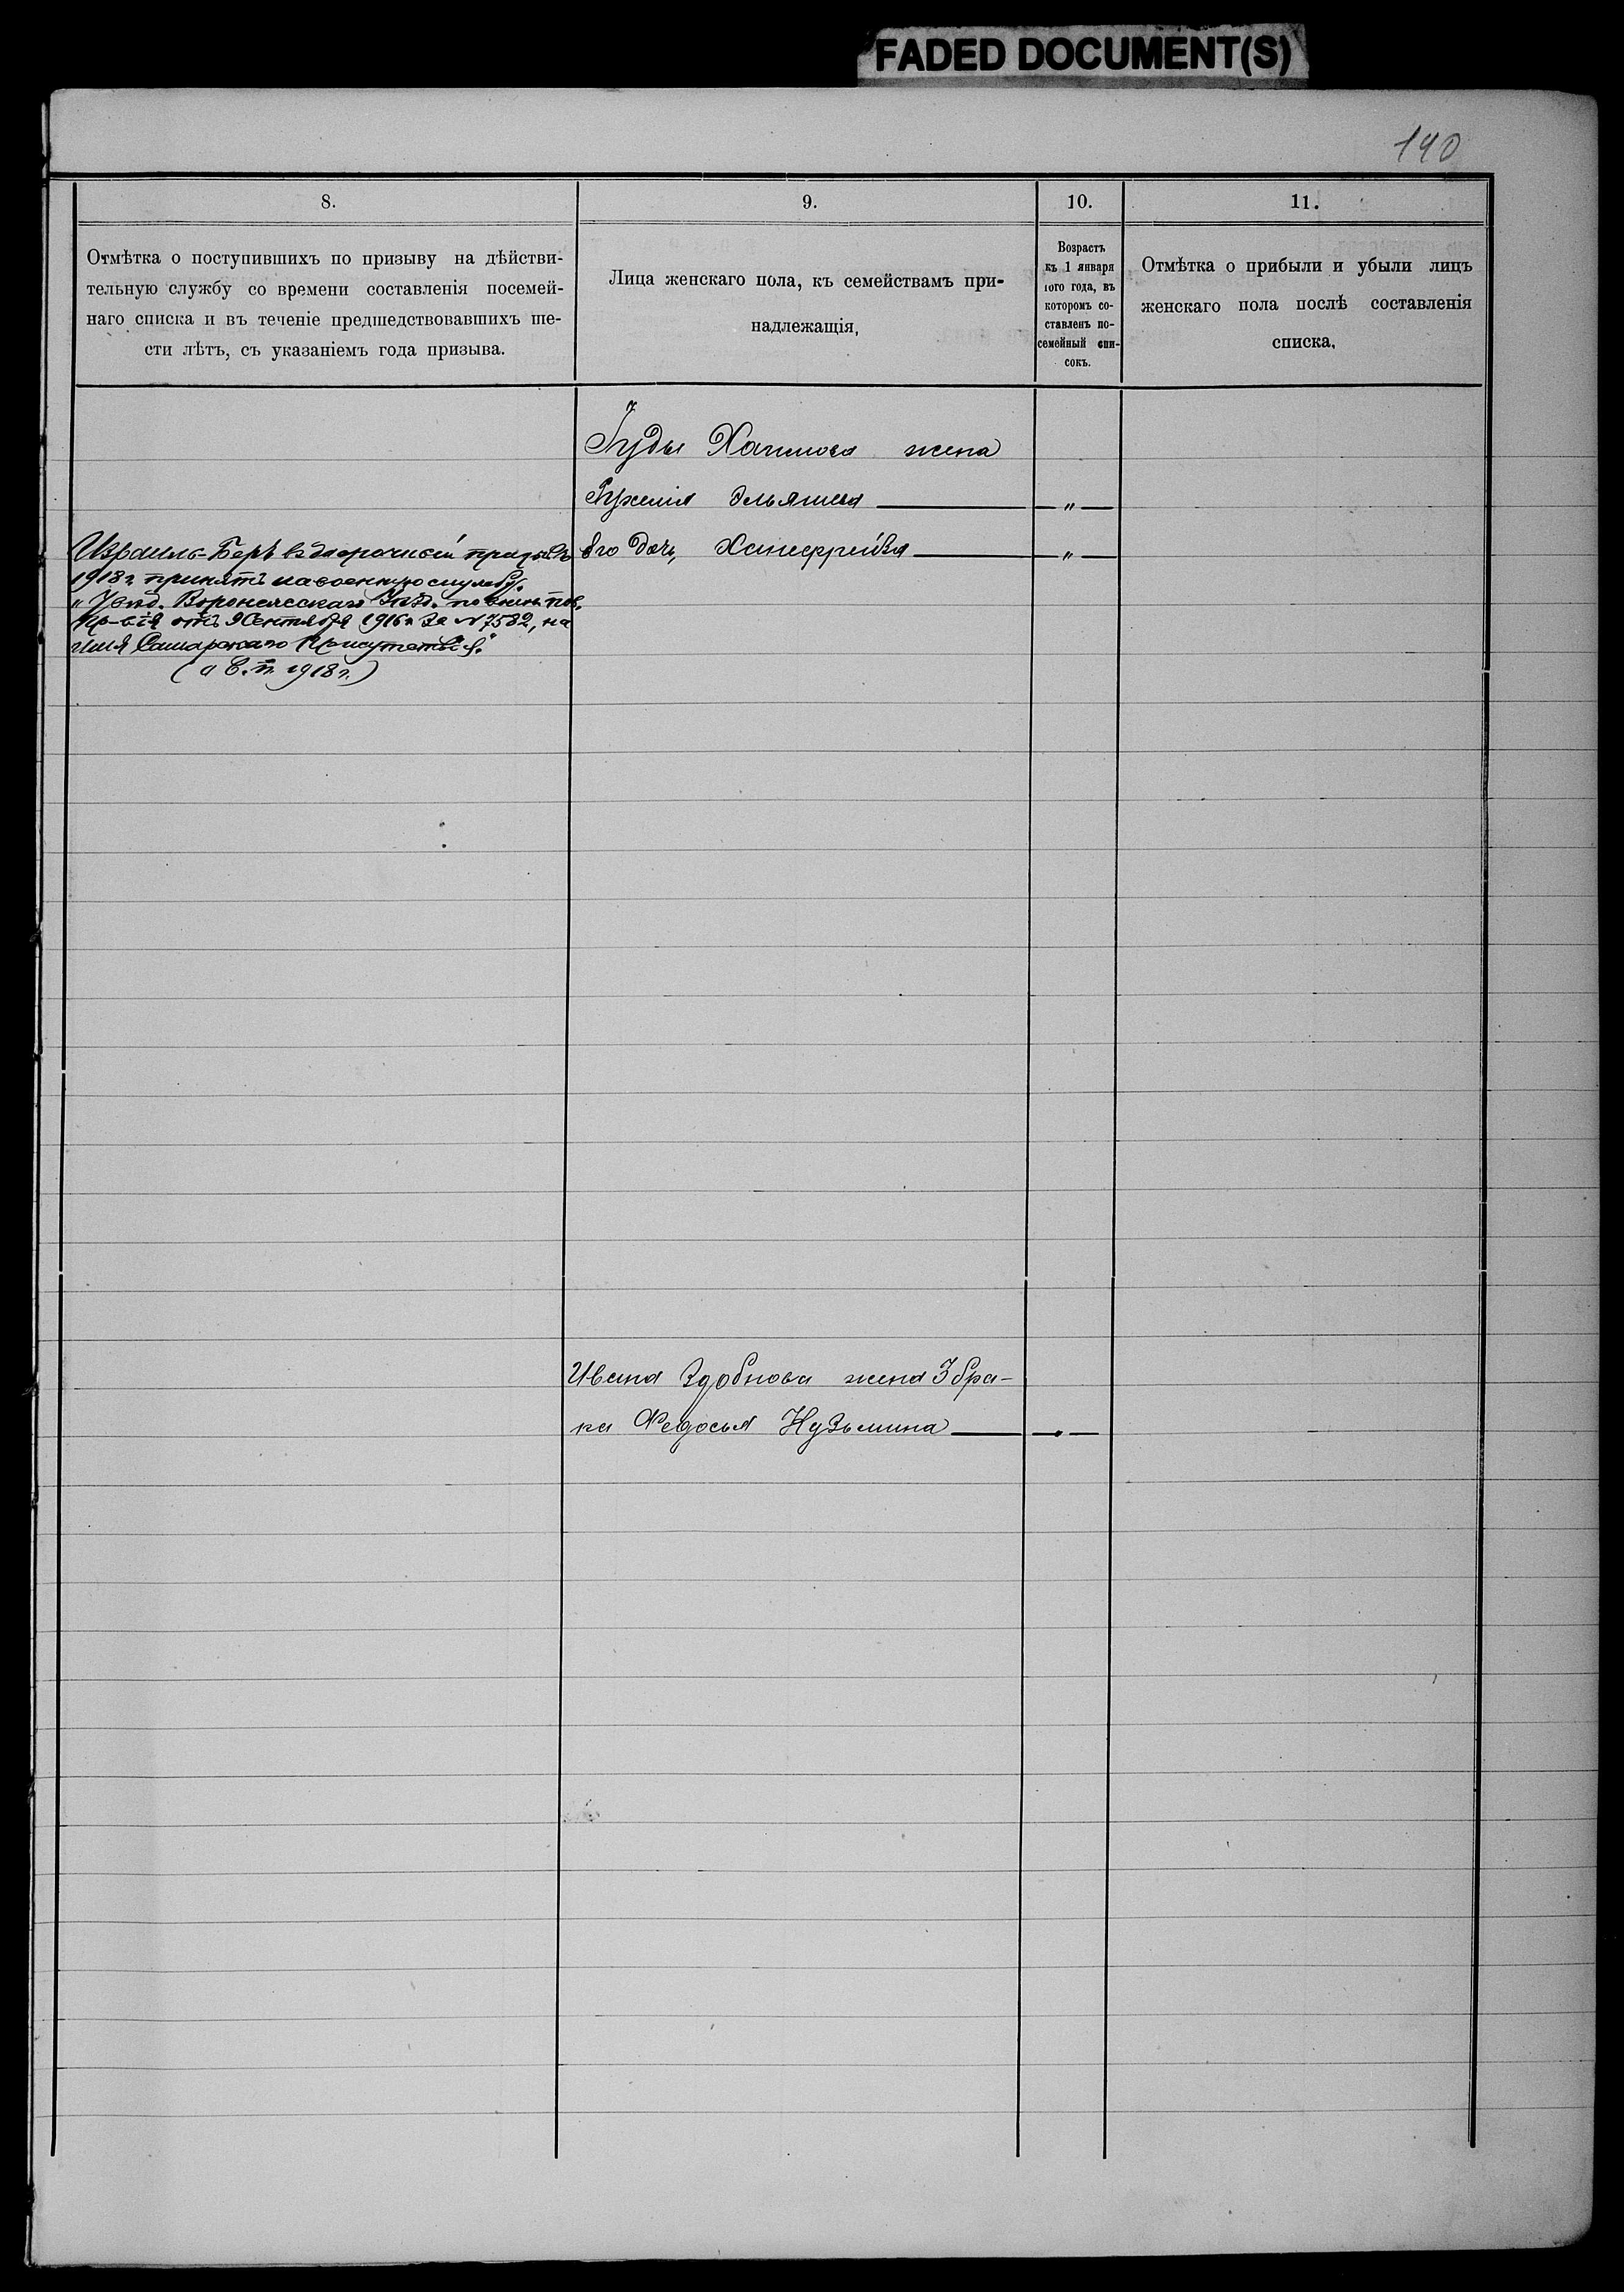 FADED DOCUMENT(S)
190
8.
Отмѣтка о поступившихъ по призыву на дѣйстви-
тельную службу со времени составленія посемей-
наго списка и въ теченіе предшедствовавшихъ ше-
сти лѣтъ, съ указаніемъ года призыва.
9.
Лица женскаго пола, къ семействамъ при-
надлежащія,
10.
Возрастъ
къ 1 января
того года, въ
которомъ со-
ставленъ по-
семейный спи-
сокъ.
11.
Отмѣтка о прибыли и убыли лицъ
женскаго пола послѣ составленія
списка,
Іуды Хаимова жена
Рухеля Эльяшева — „ —
Его дочь, — „ —
Израиль-Беръ въ досрочный призывъ
1918г. принятъ на военную службу.
„Увѣд. Воронежскаго Уѣзд. по воин. пов.
Пр-вія отъ 9 Сентября 1916г. за №7582, на
имя Самарскаго Присутствія."
1918г.)
Ивана Здобнова жена 3 бра-
ка Федосья Кузьмина — „ —